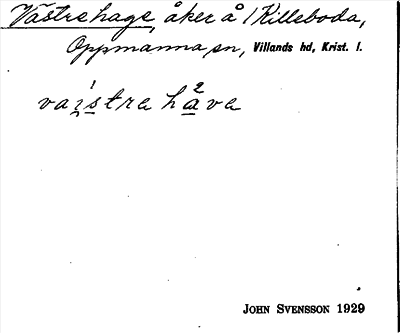 Västrehage, åker å Killeboda,
Oppmanna sn, Villands hd, Krist. l.
vaistra hava
JOHN SVENSSON 1929